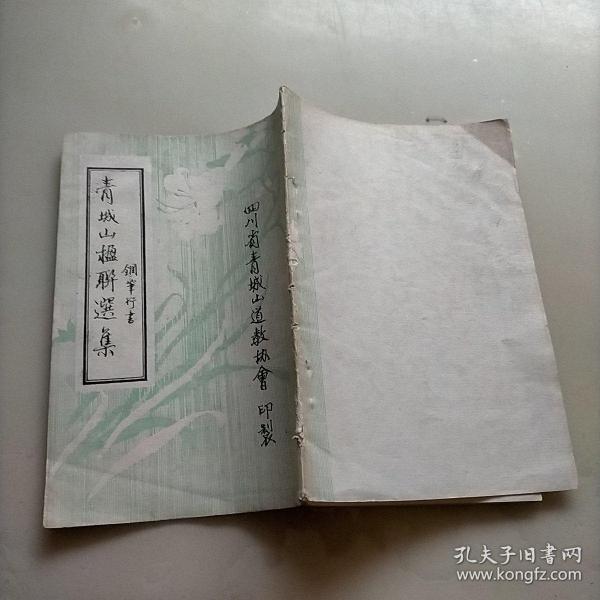 青城山楹聯選集
鋼筆行書
四川省青城山道教协會 印製
孔夫子旧书网
www.kongfz.com